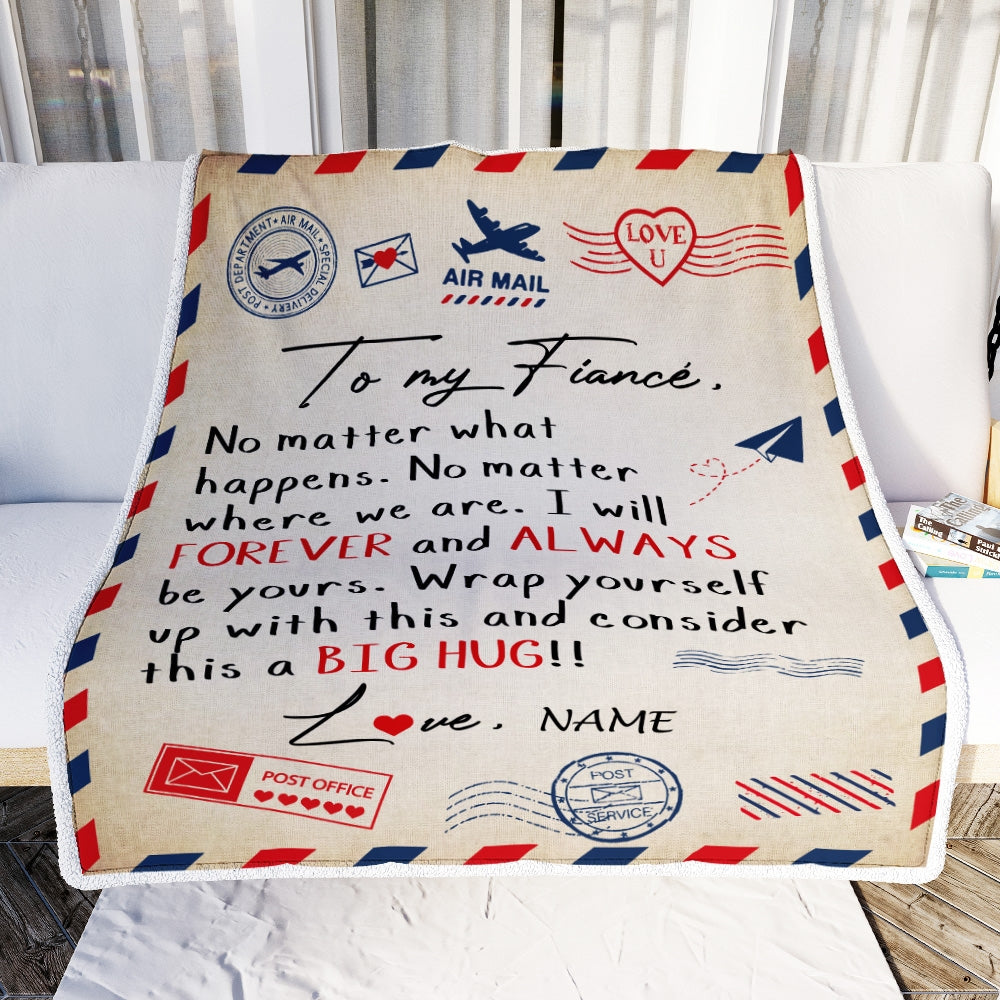 POST DEPARTMENT ★ AIR MAIL ★ SPECIAL DELIVERY ★
AIR MAIL
LOVE
U
To my Fiancé,
No matter what
happens. No matter
where we are. I will
FOREVER and ALWAYS
be yours. Wrap yourself
up with this and consider
this a BIG HUG!!
Love, NAME
POST OFFICE
POST
SERVICE
The
Calling
Paul